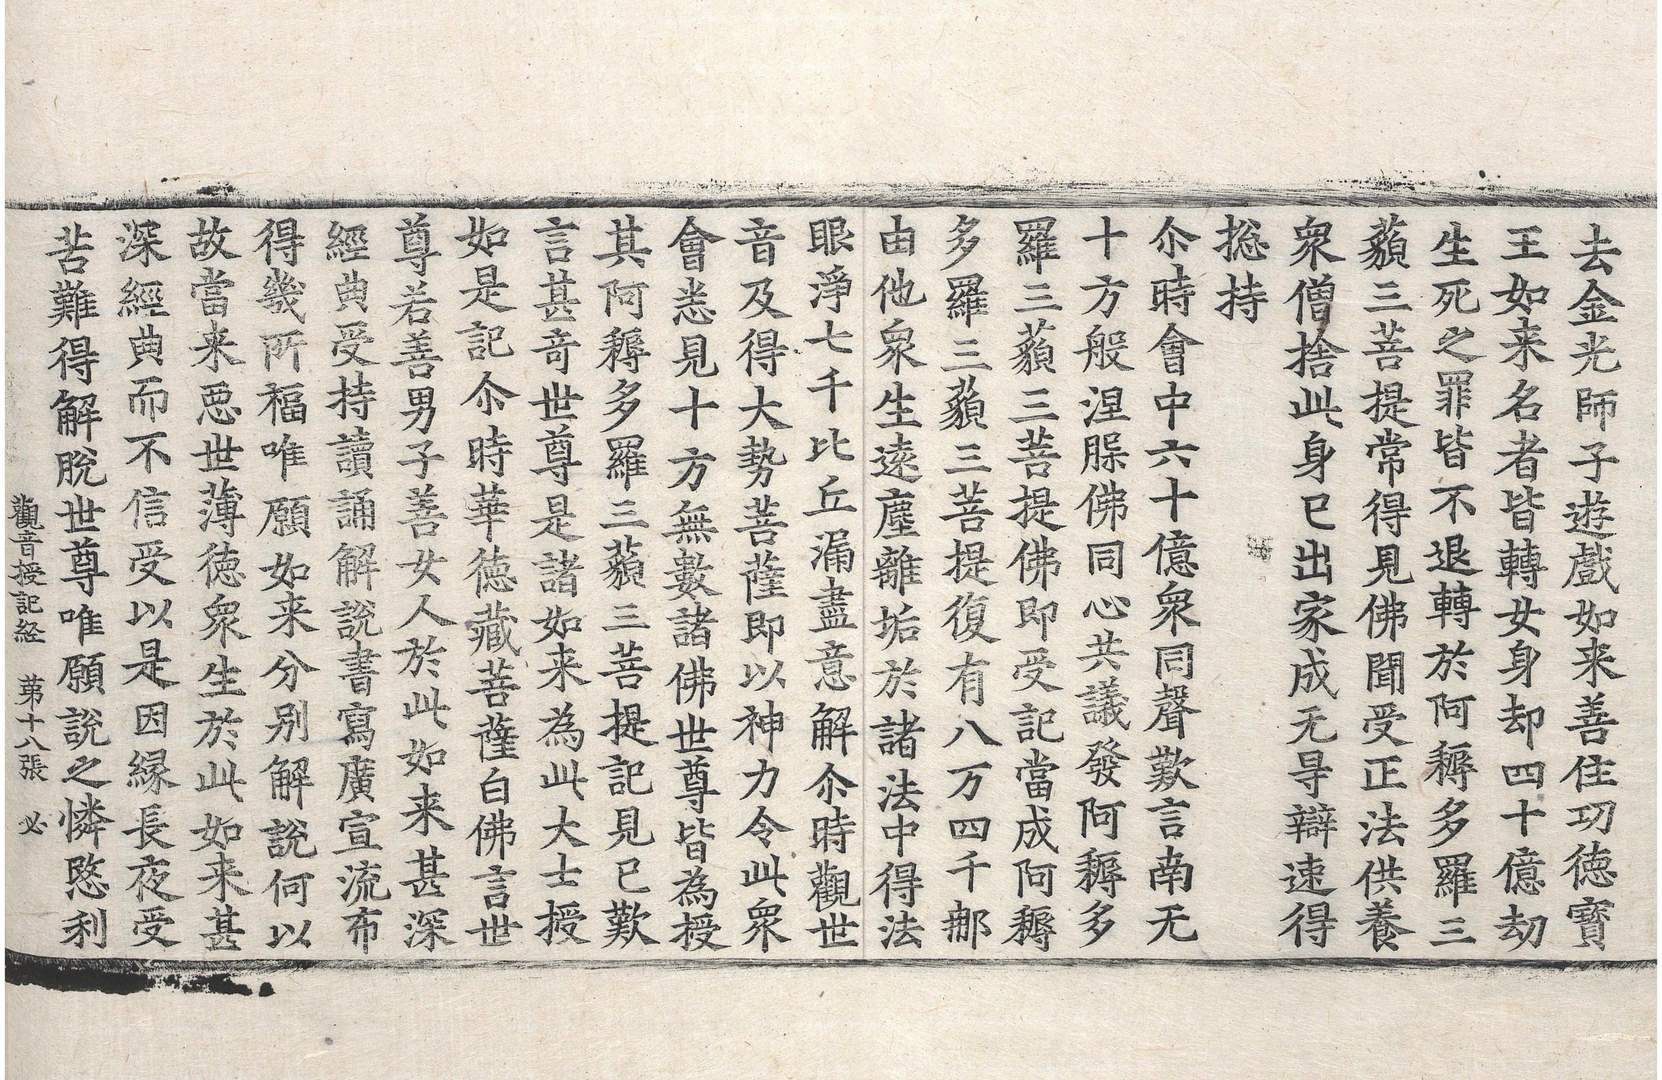 去金光師子遊戲如来善住功徳寳
王如来名者皆轉女身却四十億劫
生死之罪皆不退轉於阿耨多羅三
藐三菩提常得見佛聞受正法供養
衆僧捨此身已出家成无㝵辯速得
捴持
尒時會中六十億衆同聲歎言南无
十方般涅槃佛同心共議發阿耨多
羅三藐三菩提佛即受記當成阿耨
多羅三藐三菩提復有八万四千那
由他衆生遠塵離垢於諸法中得法
眼淨七千比丘漏盡意解尒時觀世
音及得大勢菩薩即以神力令此衆
會悉見十方無數諸佛世尊皆為授
其阿耨多羅三藐三菩提記見已歎
言甚竒世尊是諸如来為此大士授
如是記尒時華徳藏菩薩白佛言世
尊若善男子善女人於此如来甚深
經典受持讀誦解說書寫廣宣流布
得幾所福唯願如来分别解說何以
故當来惡世薄徳衆生於此如来甚
深經典而不信受以是因縁長夜受
苦難得解脫世尊唯願說之憐愍利
觀音授記経　第十八張　必